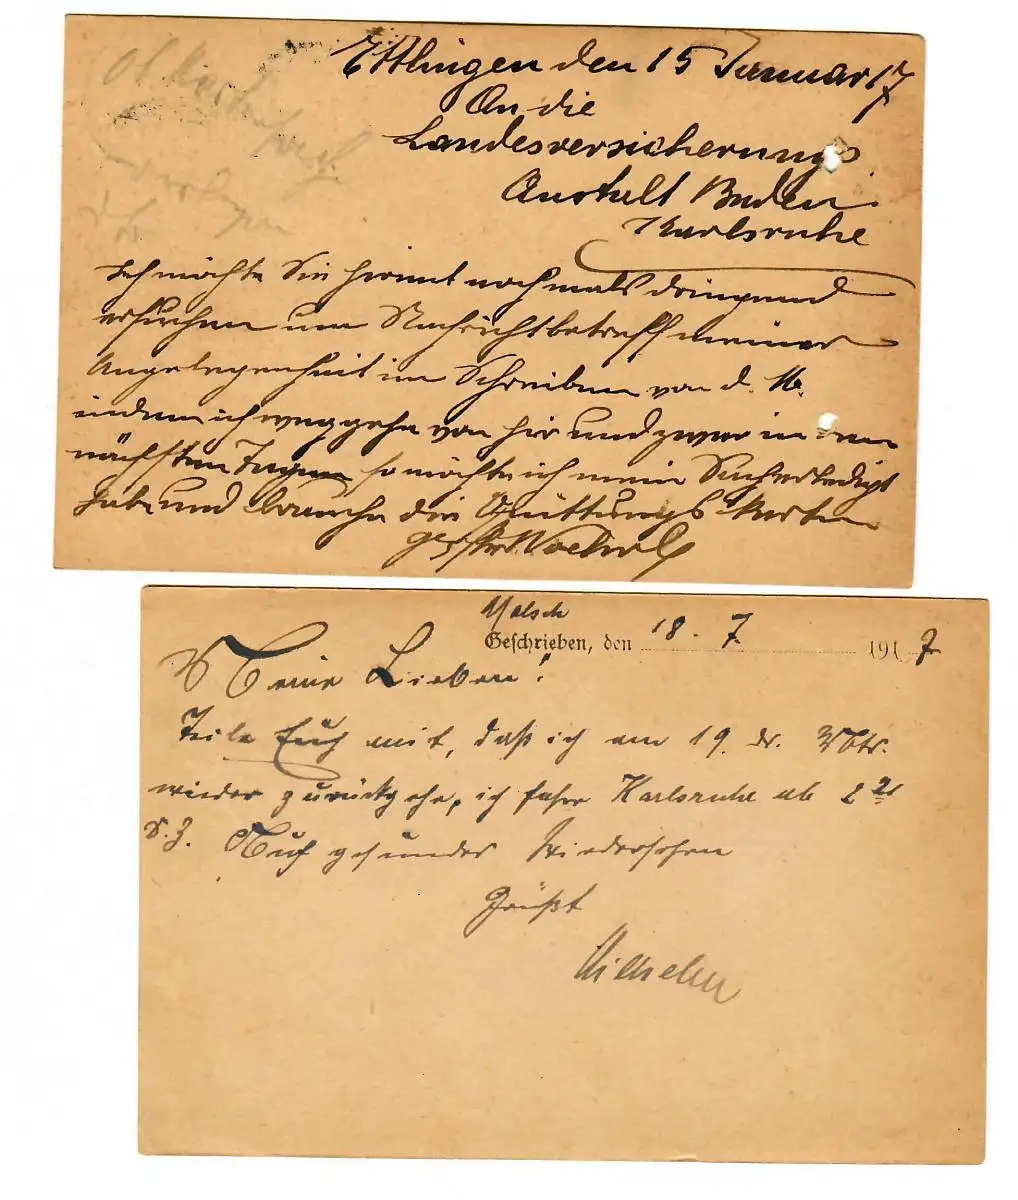 Ettlingen den 15 Januar 17
An die
Landesversicherungs
Anstalt Baden
Karlsruhe
Ich möchte Sie hiermit nochmals dringend
ersuchen um Nachricht betreff meiner
Angelegenheit im Schreiben von d. M.
indem ich weggehe von hier und zwar in den
nächsten Tagen so möchte ich meine Sache erledigt
habe und brauche die Quittungs Karten
Malsch
Geschrieben, den 18. 7. 1917
Meine Lieben!
Teile Euch mit, daß ich am 19. ds. Mts.
wieder zurückgehe, ich fahre Karlsruhe ab
Auf gesundes Wiedersehen
Grüßt
Wilhelm